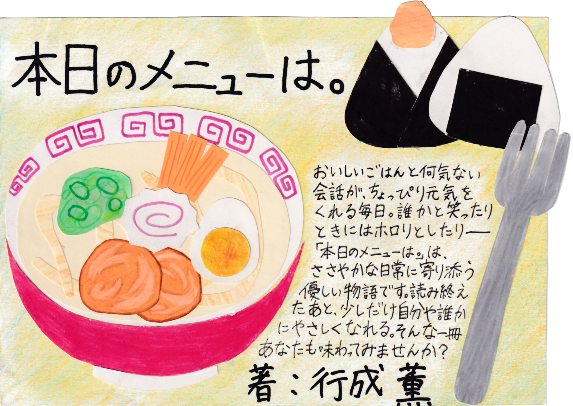 本日のメニューは。
おいしいごはんと何気ない
会話が、ちょっぴり元気を
くれる毎日。誰かと笑ったり
ときにはホロリとしたり──
「本日のメニューは。」は、
ささやかな日常に寄り添う
優しい物語です。読み終え
たあと、少しだけ自分や誰か
にやさしくなれる。そんな一冊
あなたも味わってみませんか？
著：行成 薫